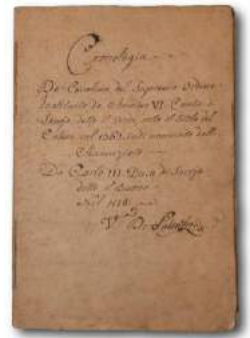 Cronologia
De Cavalieri del Supremo Ordine
Instituito da Amedeo VI. Conte di
Savoja detto il Verde sotto il titolo del
Collare nel 1362. indi nominato dell'
Annunziata
Da Carlo III. Duca di Savoja
detto il Buono
Nel 1518